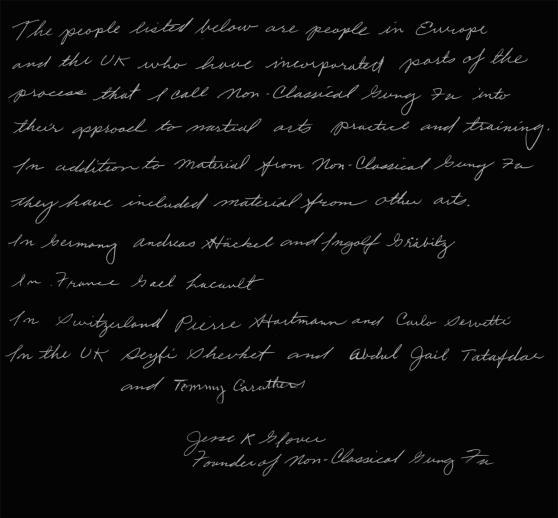 The people listed below are people in Europe
and the UK who have incorporated parts of the
process that I call Non-Classical Gung Fu into
their approach to martial arts practice and training.
In addition to material from Non-Classical Gung Fu
they have included material from other arts.
In Germany Andreas Häckel and Ingolf Gräbitz
In France Gael Lucault
In Switzerland Pierre Hartmann and Carlo Servetti
In the UK Seyfi Shevket and Abdul Jail
and Tommy Caruthers
Jesse K Glover
Founder of Non-Classical Gung Fu